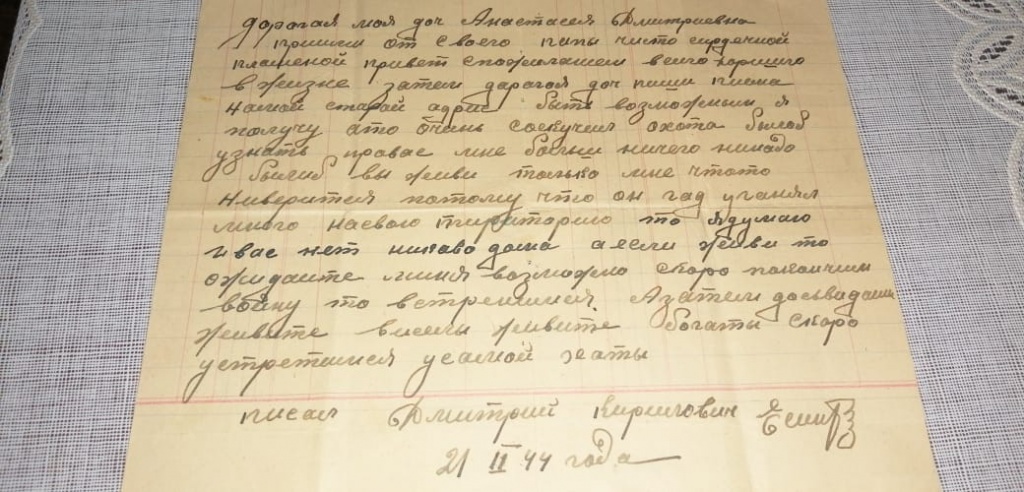 Дорогая моя доч Анастасея Дмитриевна
пришем от своего папы чисто сирдечной
пламеной привет спожиланием всиго хорошиго
в жизне затем дарогая доч пиши писма
намой старай адрис быть возможным я
получу ато очинь соскучил охота былоб
узнать правас мне больши ничего нинадо
былиб вы живи только мне чтото
ниверится потому что он гад уганял
много насвою тириторию то я думаю
ивас нет никаво дома аесли живи то
ожидайте миня возможно скоро покончим
войну то встретимся. Азатем досвидания
живите висилы живите богаты скоро
устретимся усамой хаты
писал Дмитрий Кирилович
21 II 44 года